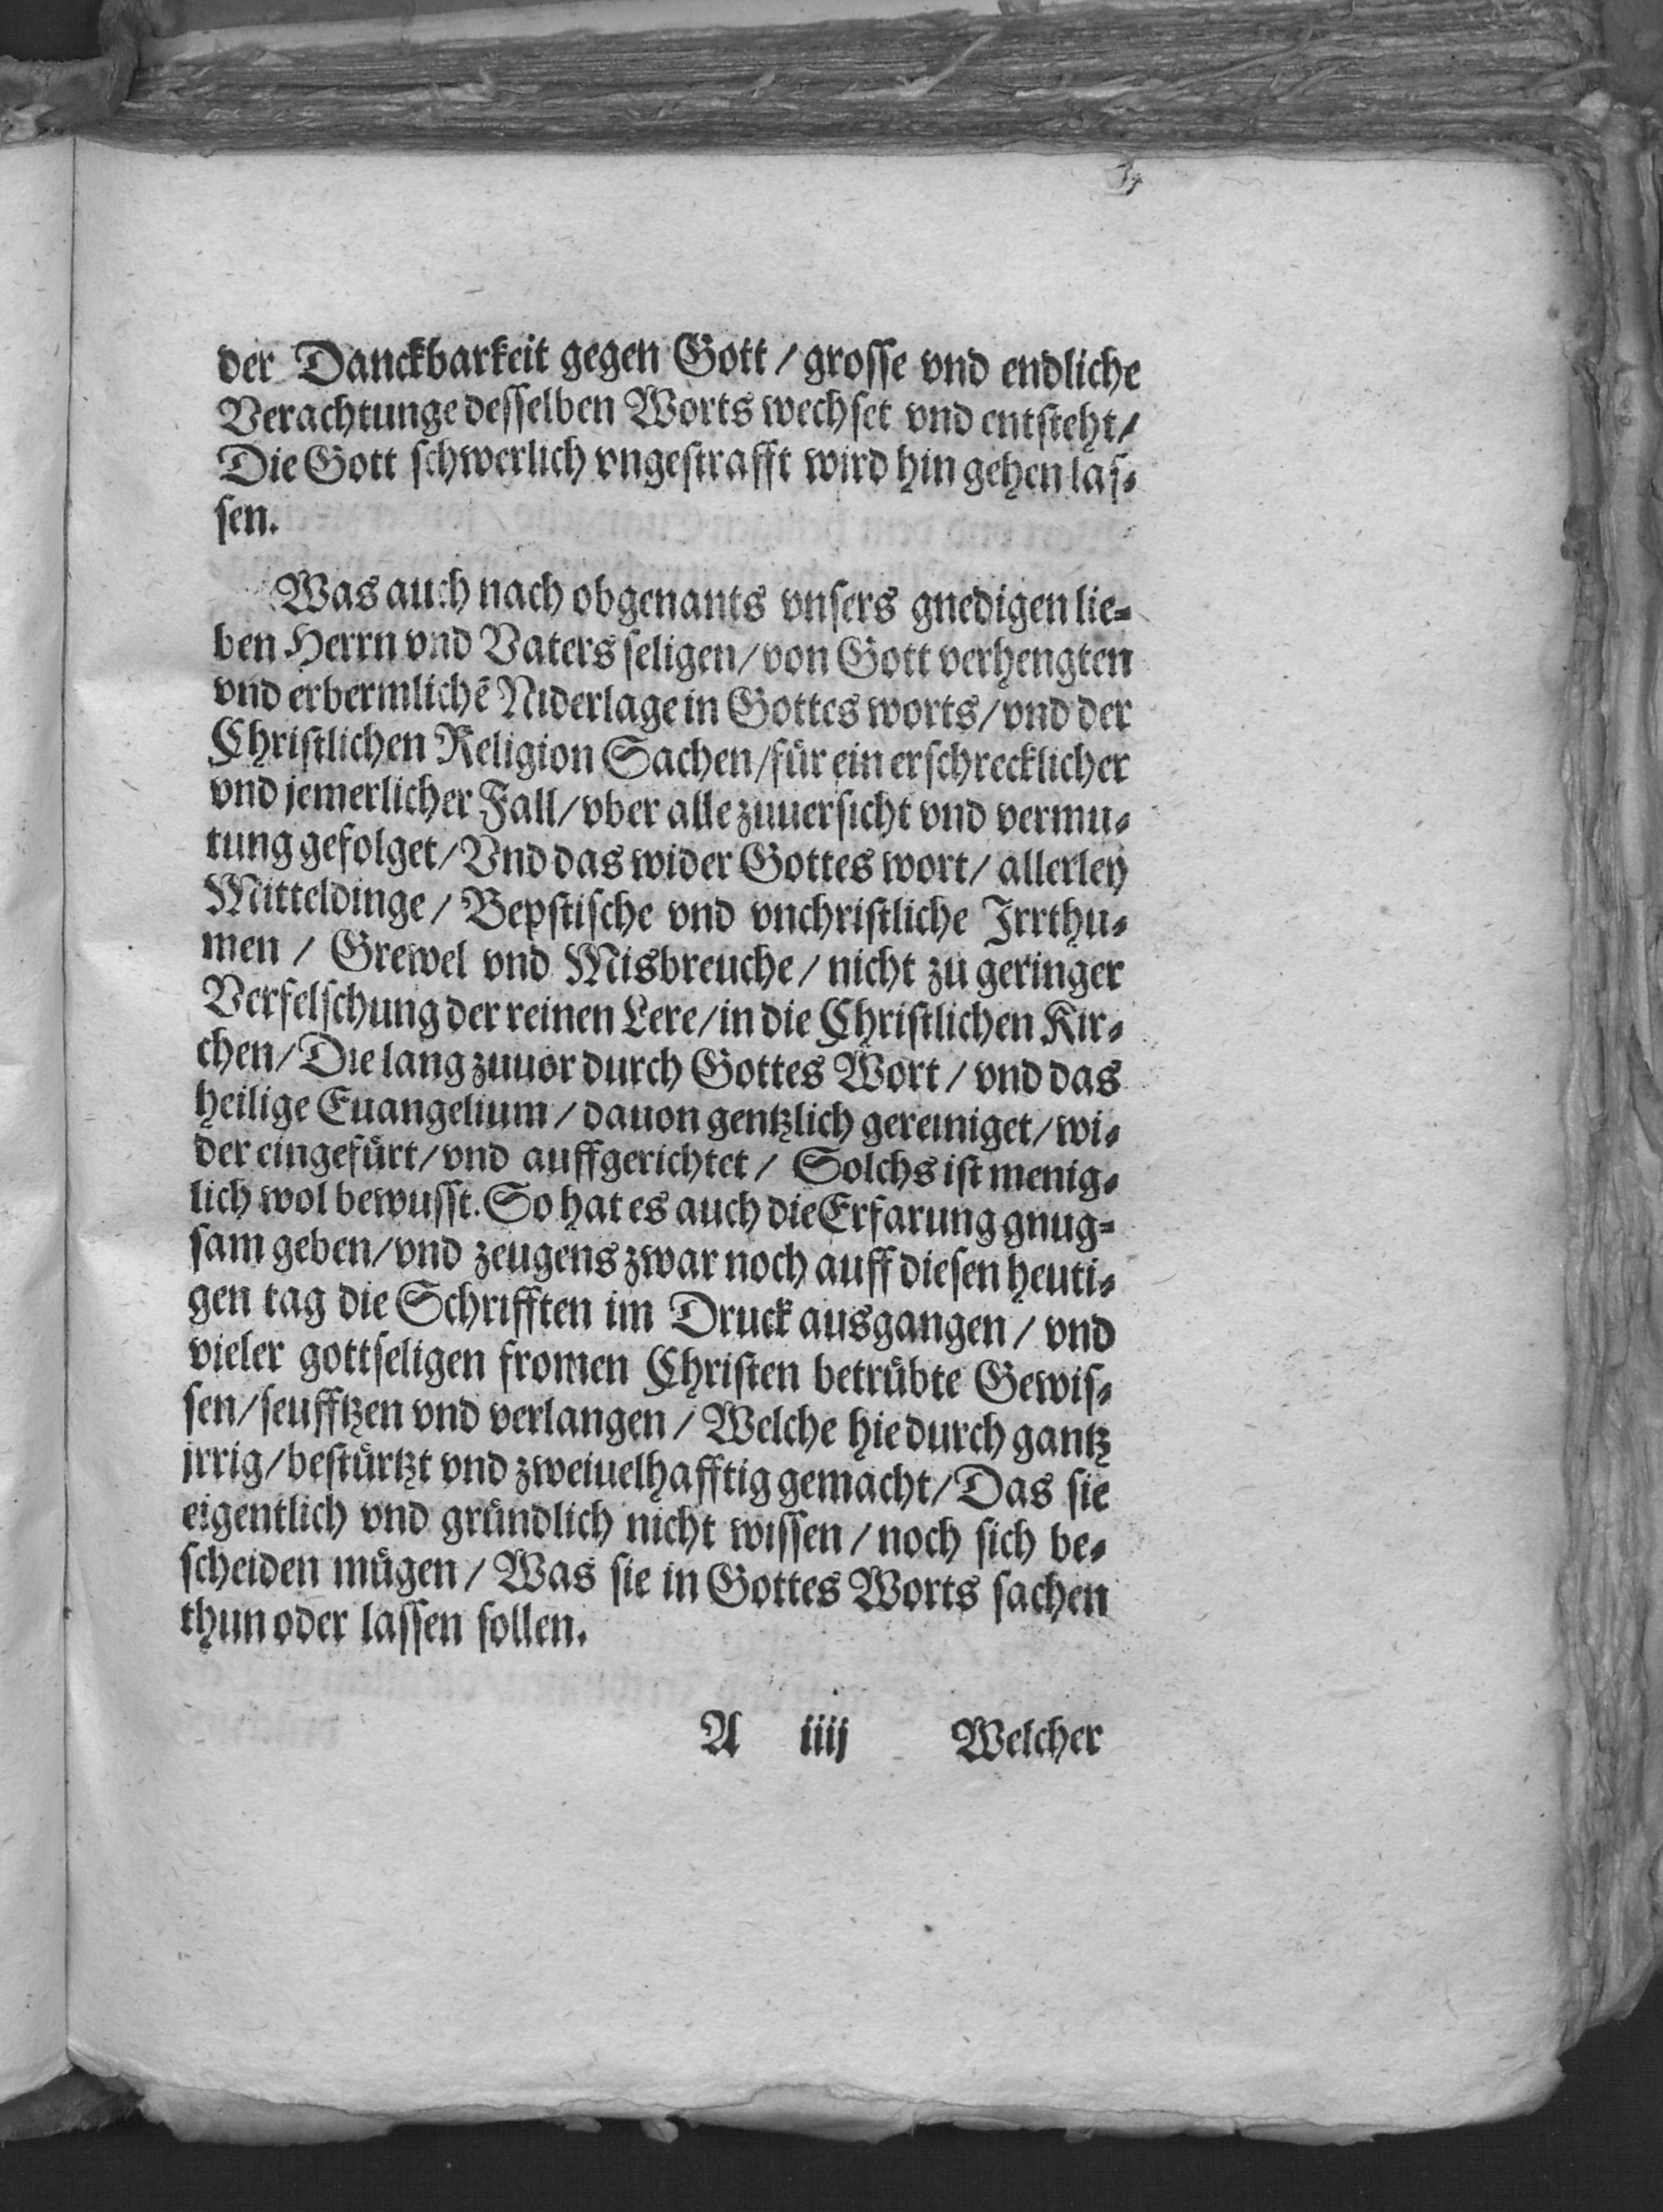 der Danckbarkeit gegen Gott / grosse vnd endliche
Verachtunge desselben Worts wechset vnd entsteht /
Die Gott schwerlich vngestrafft wird hin gehen las-
sen.
Was auch nach obgenants vnsers gnedigen lie-
ben Herrn vnd Vaters seligen / von Gott verhengten
vnd erbermlichẽ Niderlage in Gottes worts / vnd der
Christlichen Religion Sachen / fuͤr ein erschrecklicher
vnd jemerlicher Fall / vber alle zuuersicht vnd vermu-
tung gefolget / Vnd das wider Gottes wort / allerley
Mitteldinge / Bepstische vnd vnchristliche Irrthu-
men / Grewel vnd Misbreuche / nicht zu geringer
Verfelschung der reinen Lere / in die Christlichen Kir-
chen / Die lang zuuor durch Gottes Wort / vnd das
heilige Euangelium / dauon gentzlich gereiniget / wi-
der eingefuͤrt / vnd auffgerichtet / Solchs ist menig-
lich wol bewusst. So hat es auch die Erfarung gnug-
sam geben / vnd zeugens zwar noch auff diesen heuti-
gen tag die Schrifften im Druck ausgangen / vnd
vieler gottseligen fromen Christen betruͤbte Gewis-
sen / seufftzen vnd verlangen / Welche hie durch gantz
jrrig / bestuͤrtzt vnd zweiuelhafftig gemacht / Das sie
eigentlich vnd gruͤndlich nicht wissen / noch sich be-
scheiden muͤgen / Was sie in Gottes Worts sachen
thun oder lassen sollen.
A iiij Welcher